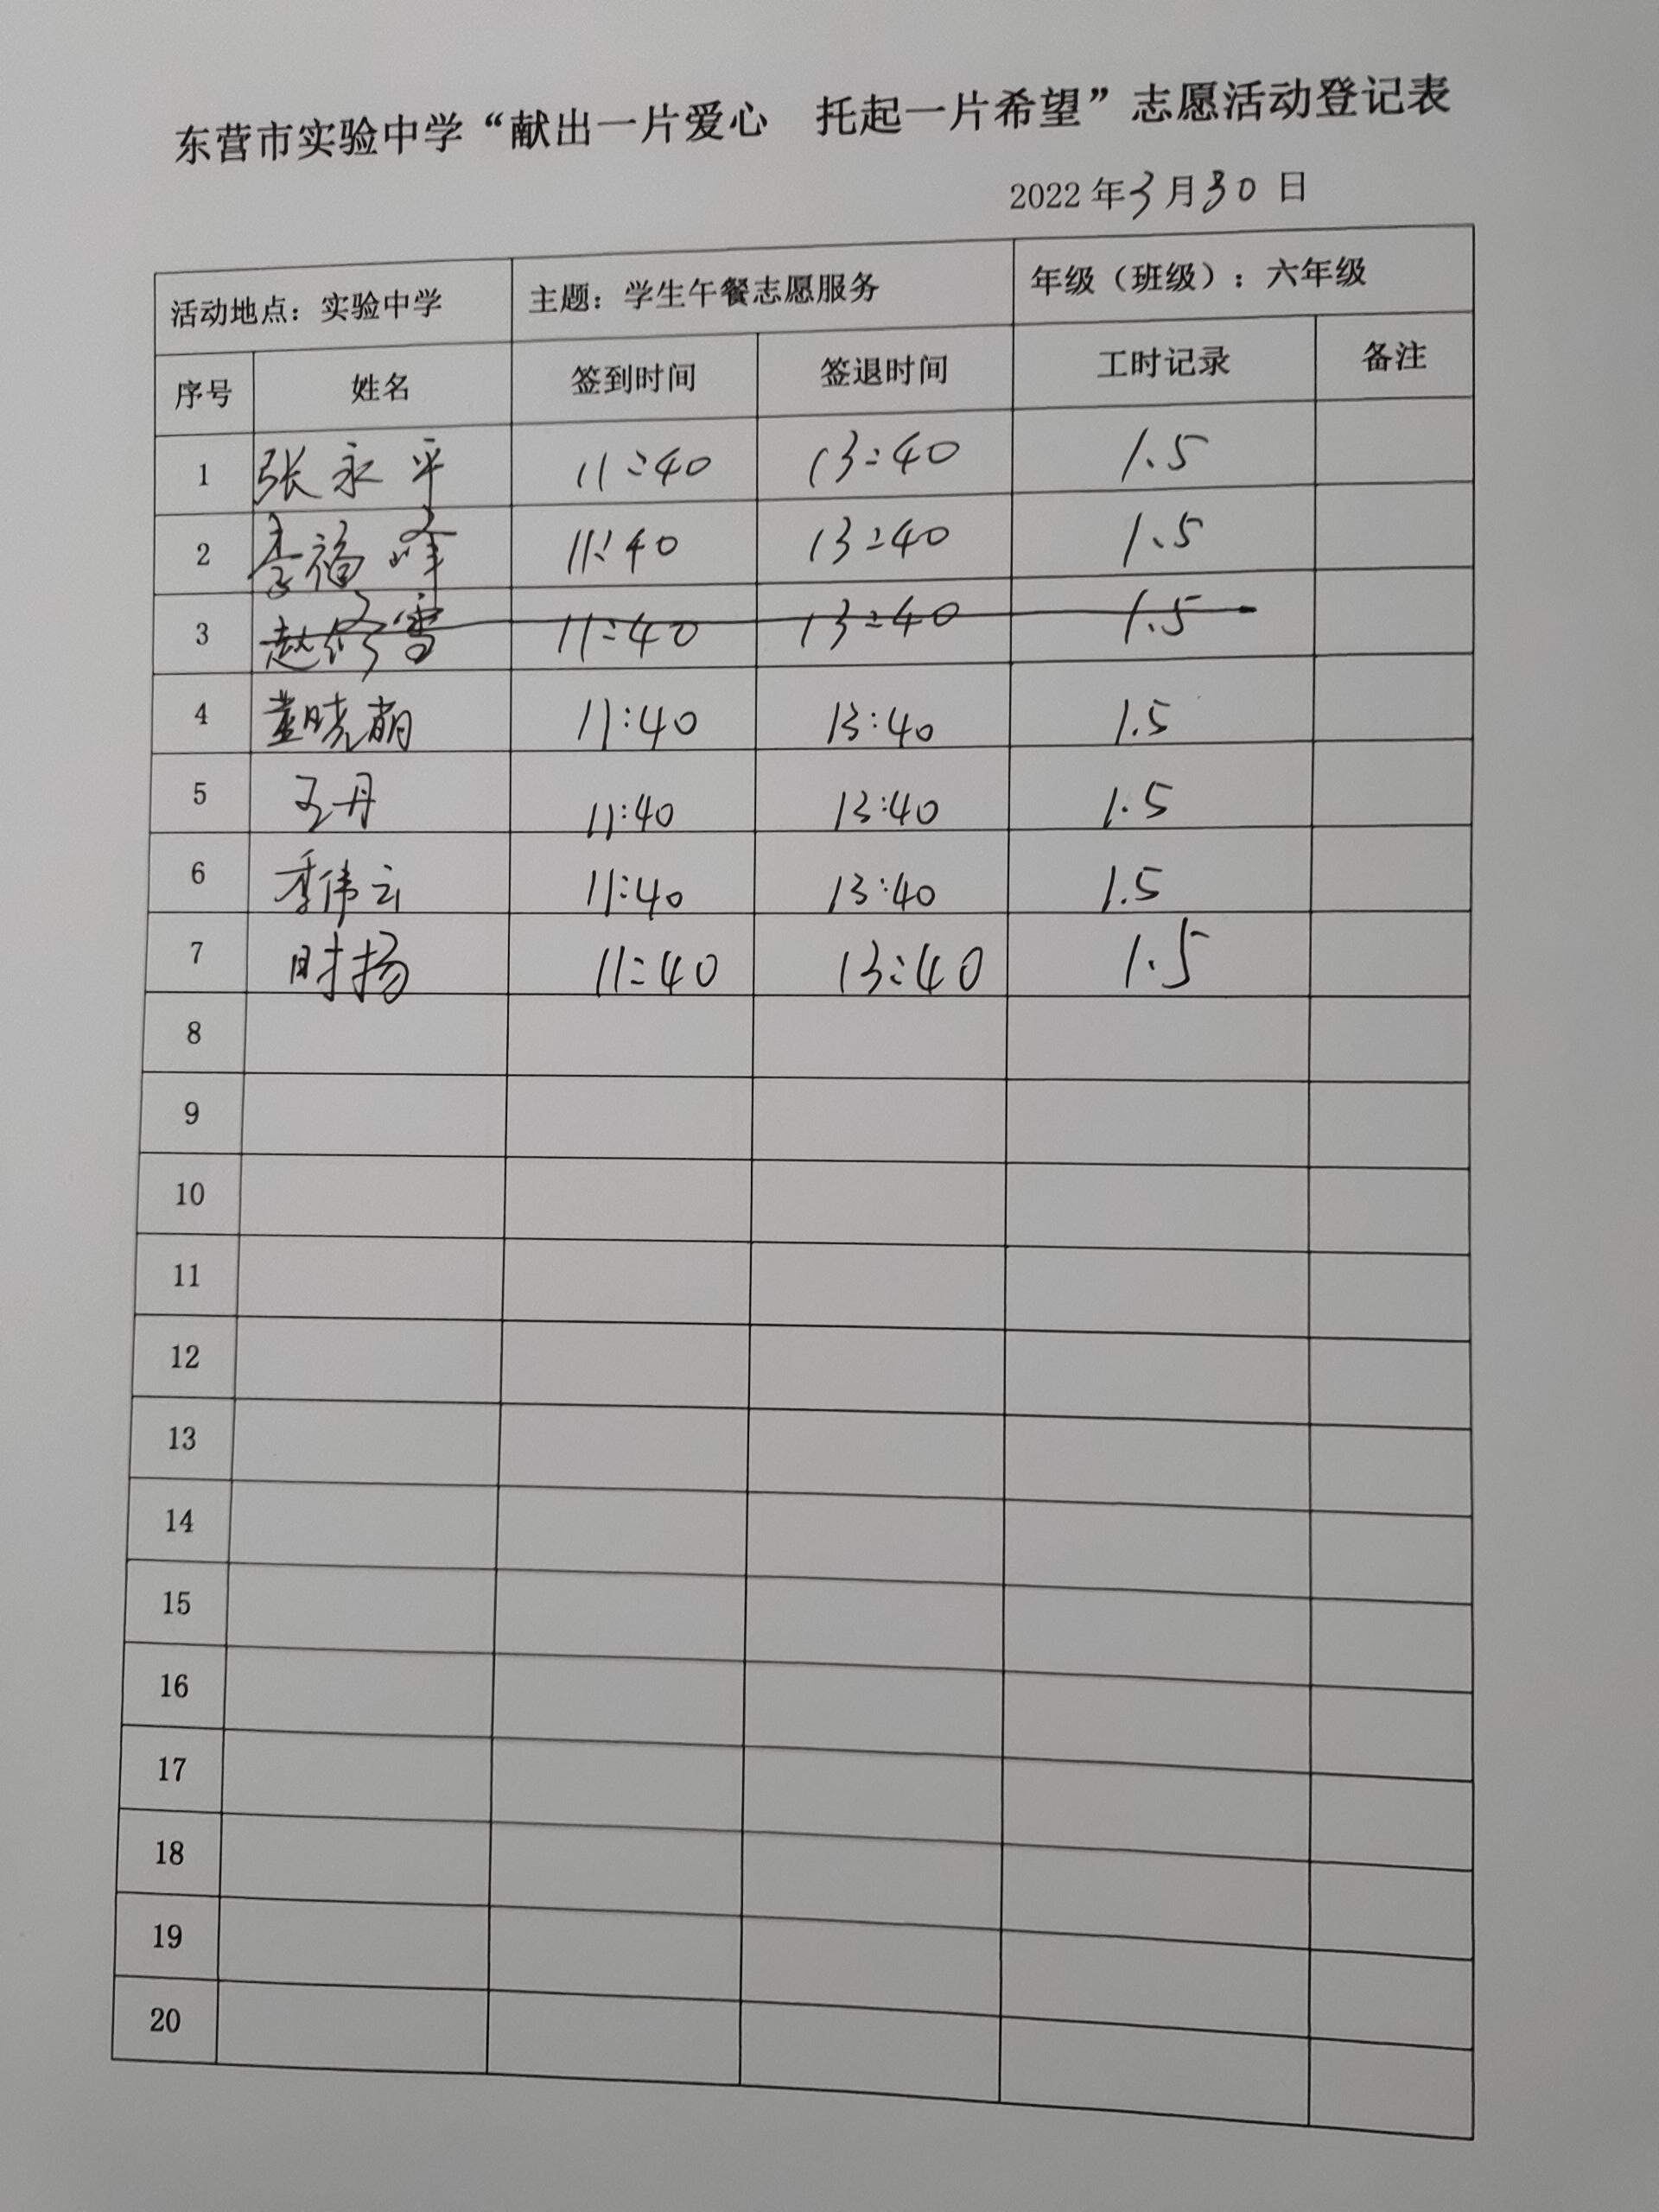 东营市实验中学“献出一片爱心 托起一片希望”志愿活动登记表
2022年3月30日
活动地点：实验中学 主题：学生午餐志愿服务 年级（班级）：六年级
序号 姓名 签到时间 签退时间 工时记录 备注
1 张永平 11:40 13:40 1.5
2 李福峰 11:40 13:40 1.5
3 赵修雪 11:40 13:40 1.5
4 董晓萌 11:40 13:40 1.5
5 王丹 11:40 13:40 1.5
6 季伟云 11:40 13:40 1.5
7 时扬 11:40 13:40 1.5
8
9
10
11
12
13
14
15
16
17
18
19
20